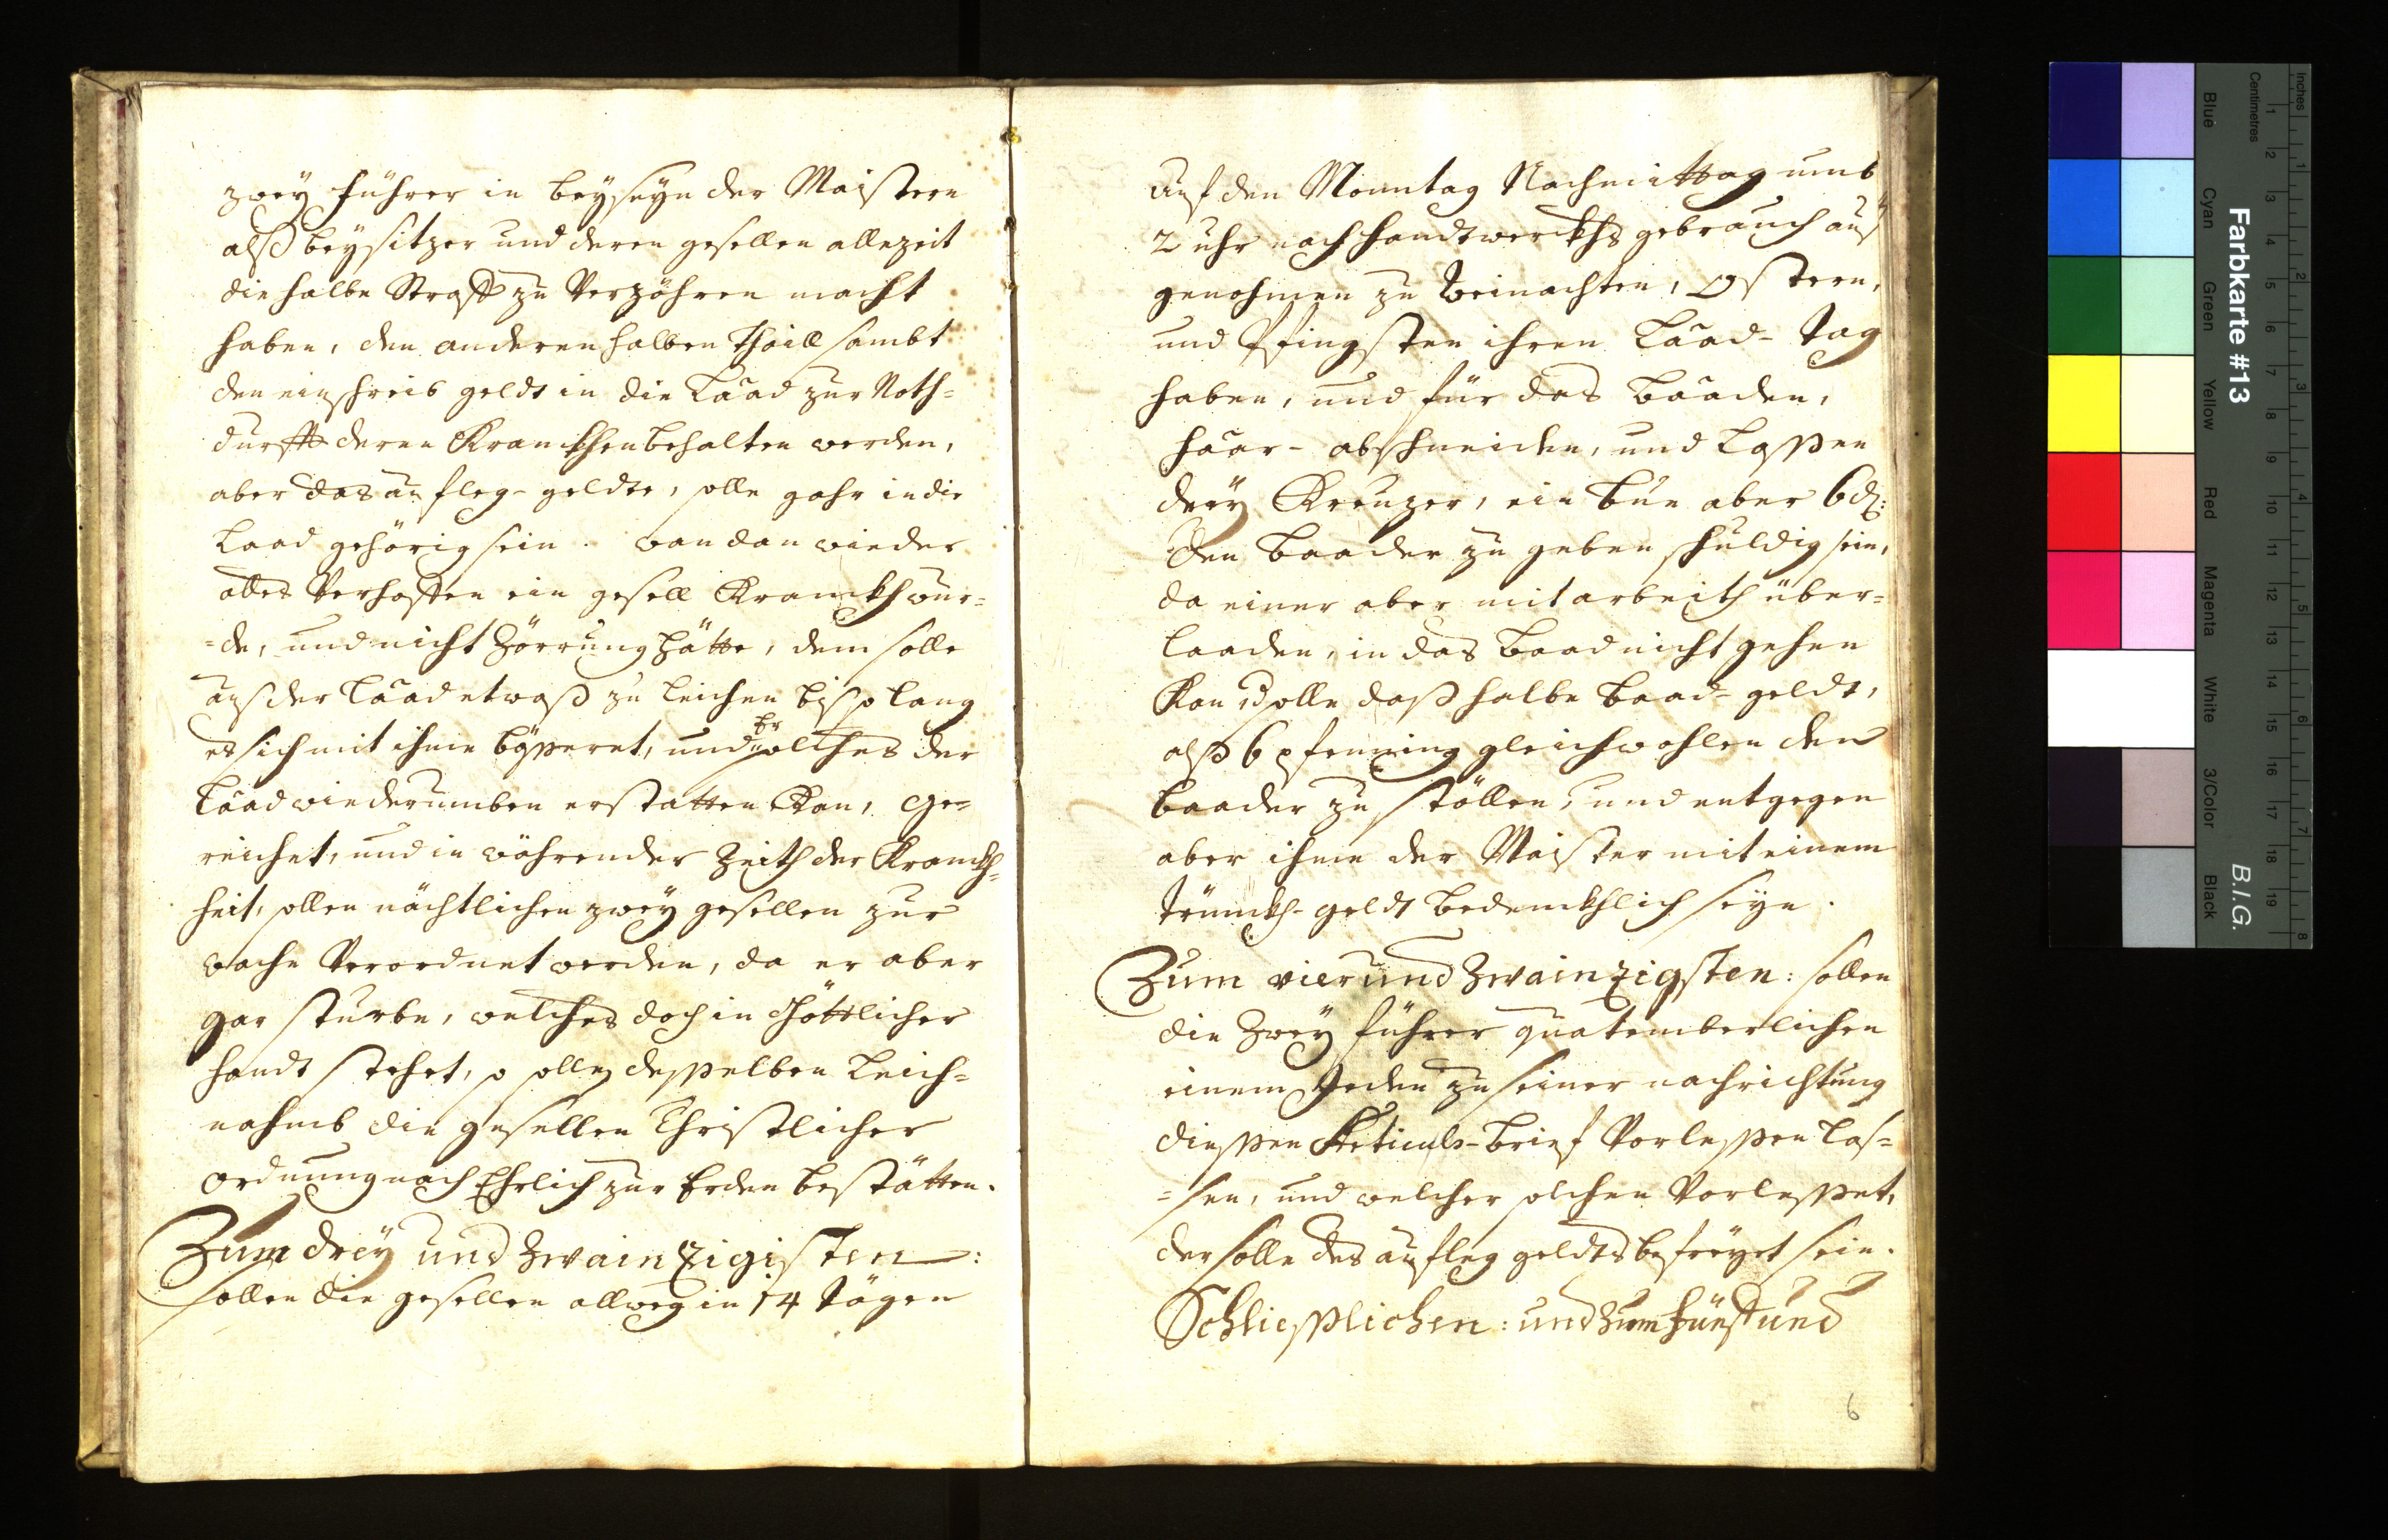 zwey führer in beyseyn der Maistern
alß beysitzer und deren gesellen allezeit
die halbe Straff zu Verzöhren macht
haben, den anderen halben thaill sambt
den einschreib geldt in die Laad zur Noth-
durfft deren Kranckhen behalten werden,
aber das auf leg-geldte, solle gahr in die
Laad gehörig sein. wan dan wieder
alles Verhoffen ein gesell Kranckh wur-
=de, und nicht Zörrung hätte, dem solle
auß der Laad etwaß zu leichen biß so lang
es sich mit ihme bösseret, und Er solches der
Laad wiederumben erstatten Kan, ge-
reichet, und in währender Zeith der Kranckh-
heit, sollen nächtlichen zwey gesellen zur
wache Verordnet werden, da er aber
gar sturbe, welches doch in Göttlicher
handt stehet, so solle desselben Leich-
nahmb die gesellen Christlicher
ordnung nach Ehrlich zur Erden bestätten.
Zum drey und Zwainzigisten:
sollen die gesellen allweg in 14 tägen
auf den Monntag Nachmittag umb
2 uhr nach handtwerckhs gebrauch auß
genohmen zu Weinachten, Ostern,
und Pfingsten ihren Laad-tag
haben, und für das Baaden,
haar-abschneiden, und Lassen
drey Kreuzer, ein bue aber 6 d:
den Baader zu geben schuldig sein,
da einer aber mit arbeith über-
laaden, in das Baad nicht gehen
Kan, solle daß halbe Baad-geldt,
alß 6 pfenning gleichwohlen den
Baader zu stöllen, und entgegen
aber ihme der Maister mit einem
trünckh-geldt bedenckhlich seyn.
Zum vierund Zwainzigsten: sollen
die Zwey führer quatemberlichen
einem Jeden zu seiner nachrichtung
diessen Articuls-brief Vorlessen las-
=sen, und welcher solchen Vorlesset,
der solle des auf leg geldts befreyet sein.
Schliesslichen: und zum fünfund
6
Farbkarte #13
B.I.G.
Inches
Centimetres
1 2 3 4 5 6 7 8 9 10 11 12 13 14 15 16 17 18 19
1 2 3 4 5 6 7 8
Blue
Cyan
Green
Yellow
Red
Magenta
White
3/Color
Black